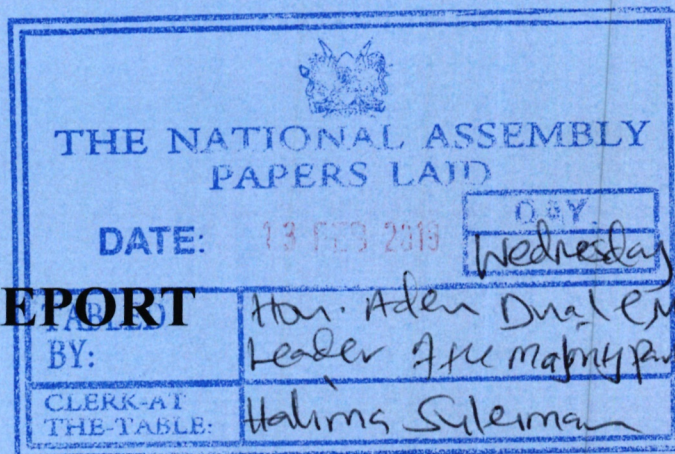 THE NATIONAL ASSEMBLY
PAPERS LAID
DATE: 13 FEB 2019
DAY.
Wednesday
EPORT
TABLED
BY:
Hon. Aden Duale
Leader of the Majority par
CLERK-AT
THE-TABLE:
Halima Suleiman